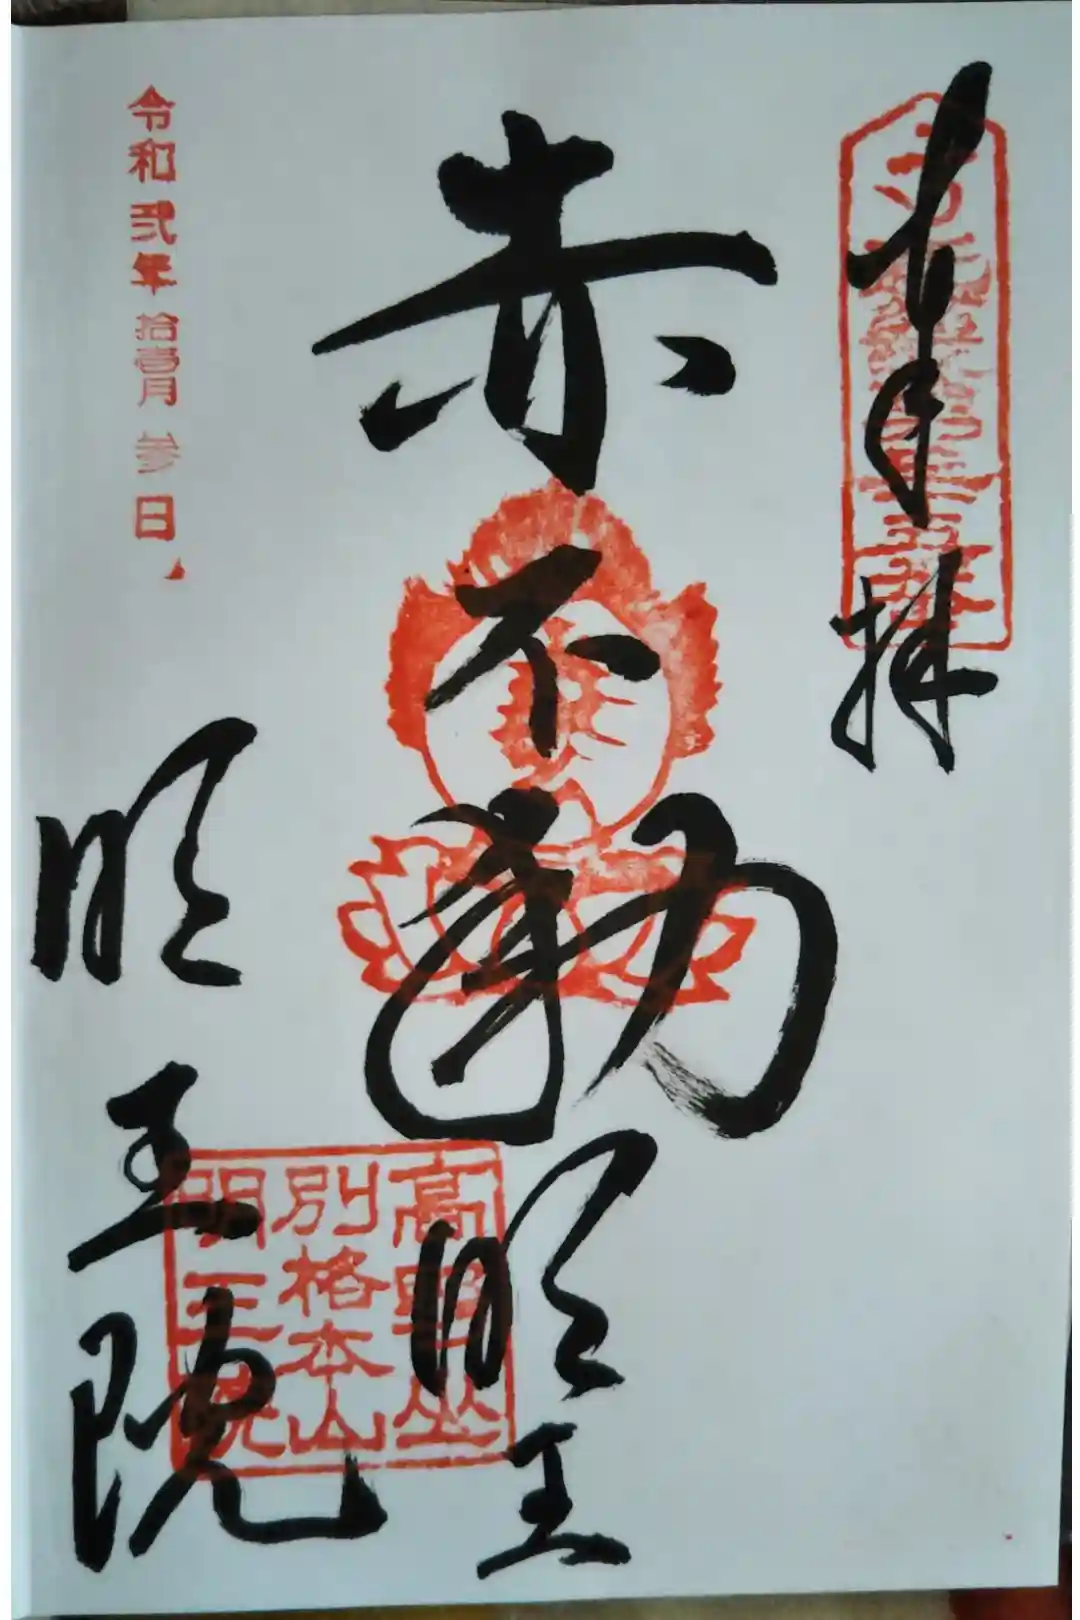 奉拝
赤不動明王
高野山
別格本山
明王院
令和弐年拾壱月参日
明王院